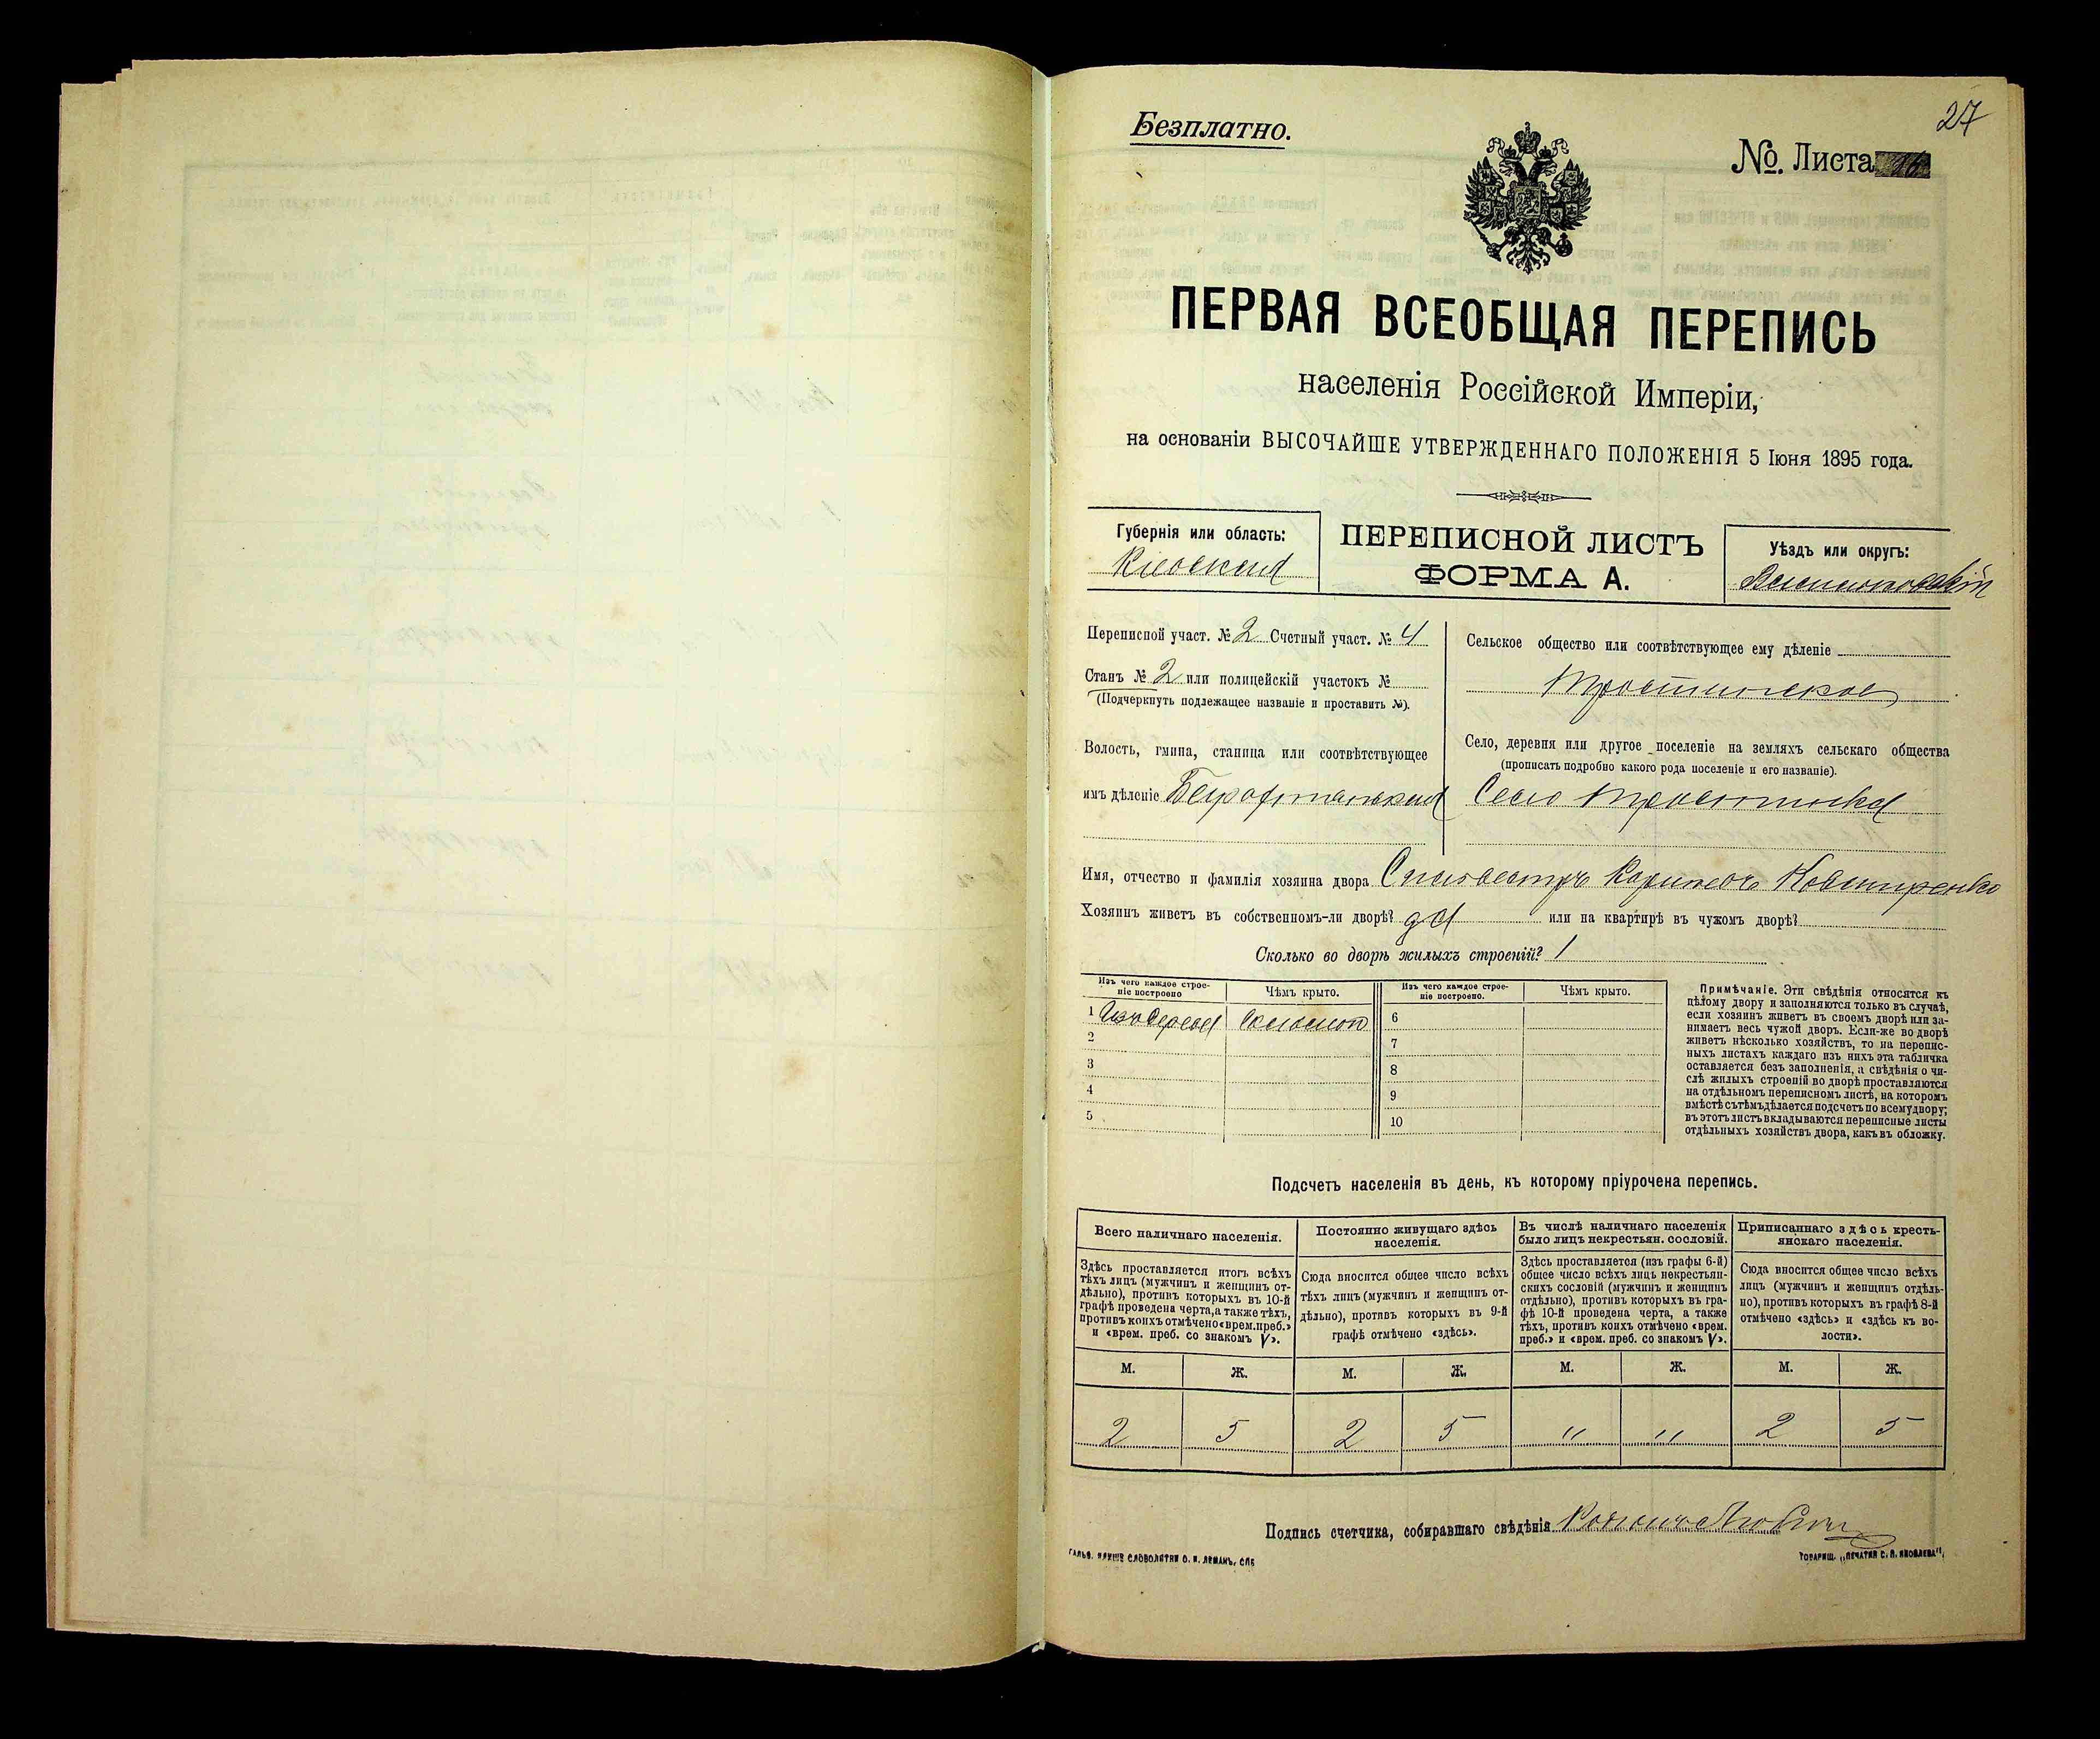 27
Безплатно.
№. Листа
ПЕРВАЯ ВСЕОБЩАЯ ПЕРЕПИСЬ
населенія Россійской Имперіи,
на основаніи ВЫСОЧАЙШЕ УТВЕРЖДЕННАГО ПОЛОЖЕНІЯ 5 Іюня 1895 года.
Губернія или область:
Кіевская
ПЕРЕПИСНОЙ ЛИСТЪ
ФОРМА А.
Уѣздъ или округъ:
Васильковскій
Переписной участ. № 2 Счетный участ. № 4
Станъ № 2 или полицейскій участокъ №
(Подчеркнуть подлежащее названіе и проставить №).
Волость, гмина, станица или соотвѣтствующее
имъ дѣленіе
Сельское общество или соотвѣтствующее ему дѣленіе
Тростинское
Село, деревня или другое поселеніе на земляхъ сельскаго общества
(прописать подробно какого рода поселеніе и его названіе).
Село Тростинка
Имя, отчество и фамилія хозяина двора Сильвестръ Карповъ
Хозяинъ живетъ въ собственномъ-ли дворѣ? да или на квартирѣ въ чужомъ дворѣ?
Сколько во дворѣ жилыхъ строеній? 1
Изъ чего каждое строе-
ніе построено
Чѣмъ крыто.
1 Изъ дерева соломой
2
3
4
5
Изъ чего каждое строе-
ніе построено.
Чѣмъ крыто.
6
7
8
9
10
Примѣчаніе. Эти свѣдѣнія относятся къ
цѣлому двору и заполняются только въ случаѣ,
если хозяинъ живетъ въ своемъ дворѣ или за-
нимаетъ весь чужой дворъ. Если-же во дворѣ
живетъ нѣсколько хозяйствъ, то на перепис-
ныхъ листахъ каждаго изъ нихъ эта табличка
оставляется безъ заполненія, а свѣдѣнія о чи-
слѣ жилыхъ строеній во дворѣ проставляются
на отдѣльномъ переписномъ листѣ, на которомъ
вмѣстѣ съ тѣмъ дѣлается подсчетъ по всему двору;
въ этотъ листъ вкладываются переписные листы
отдѣльныхъ хозяйствъ двора, какъ въ обложку.
Подсчетъ населенія въ день, къ которому пріурочена перепись.
Всего наличнаго населенія.
Здѣсь проставляется итогъ всѣхъ
тѣхъ лицъ (мужчинъ и женщинъ от-
дѣльно), противъ которыхъ въ 10-й
графѣ проведена черта, а также тѣхъ,
противъ коихъ отмѣчено «врем. преб.»
и «врем. преб. со знакомъ V».
Постоянно живущаго здѣсь
населенія.
Сюда вносится общее число всѣхъ
тѣхъ лицъ (мужчинъ и женщинъ от-
дѣльно), противъ которыхъ въ 9-й
графѣ отмѣчено «здѣсь».
Въ числѣ наличнаго населенія
было лицъ некрестьян. сословій.
Здѣсь проставляется (изъ графы 6-й)
общее число всѣхъ лицъ некрестьян-
скихъ сословій (мужчинъ и женщинъ
отдѣльно), противъ которыхъ въ гра-
фѣ 10-й проведена черта, а также
тѣхъ, противъ коихъ отмѣчено «врем.
преб.» и «врем. преб. со знакомъ V».
Приписаннаго здѣсь кресть-
янскаго населенія.
Сюда вносится общее число всѣхъ
лицъ (мужчинъ и женщинъ отдѣль-
но), противъ которыхъ въ графѣ 8-й
отмѣчено «здѣсь» и «здѣсь къ во-
лости».
М. Ж. М. Ж. М. Ж. М. Ж.
2 5 2 5 " " 2 5
Подпись счетчика, собиравшаго свѣдѣнія
ГАЛЬВ. КЛИШЕ СЛОВОЛИТНИ О. И. ЛЕМАНЪ, СПБ
ТОВАРИЩ. „ПЕЧАТНЯ С. П. ЯКОВЛЕВА“.